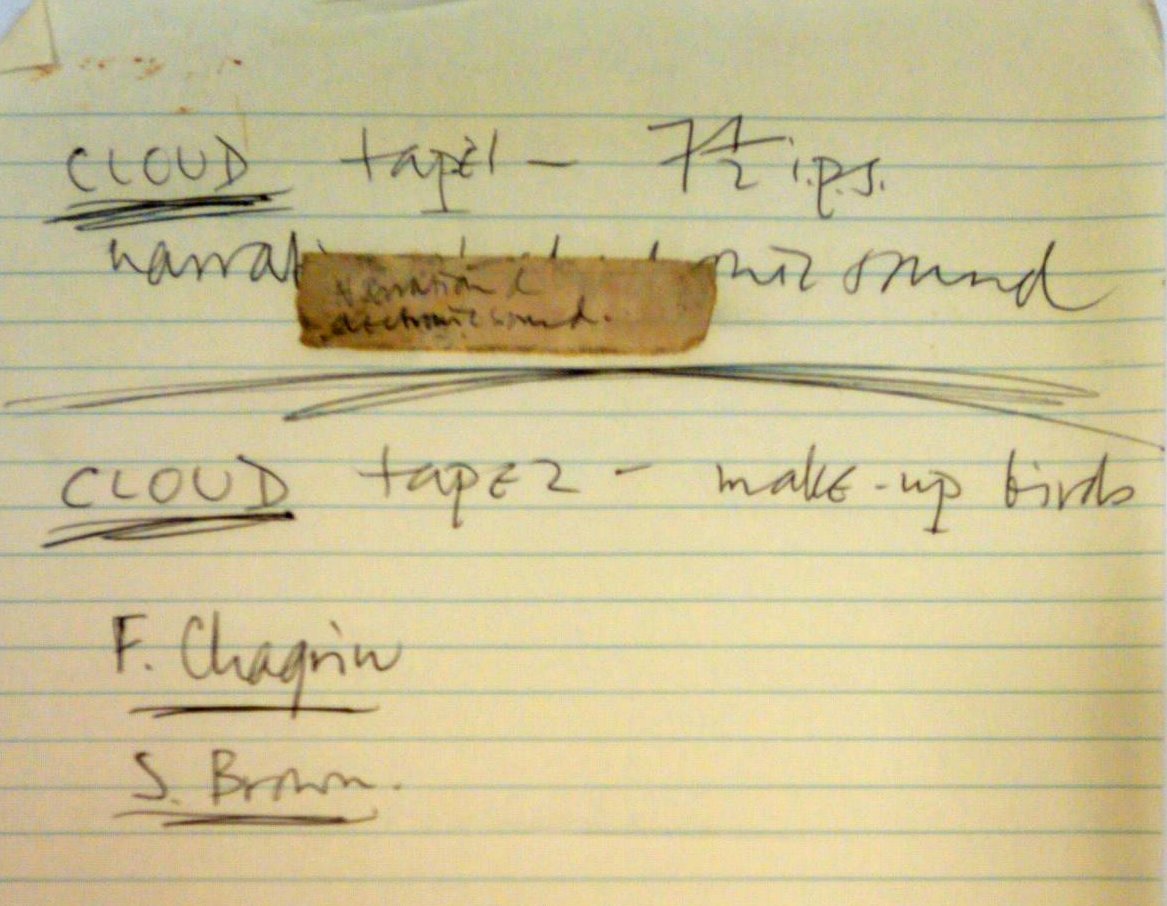 CLOUD tape 1 – 7½ i.p.s.
sound
Narration &
electronic sound.
CLOUD tape 2 – make-up birds
F. Chagrin
S. Brown.